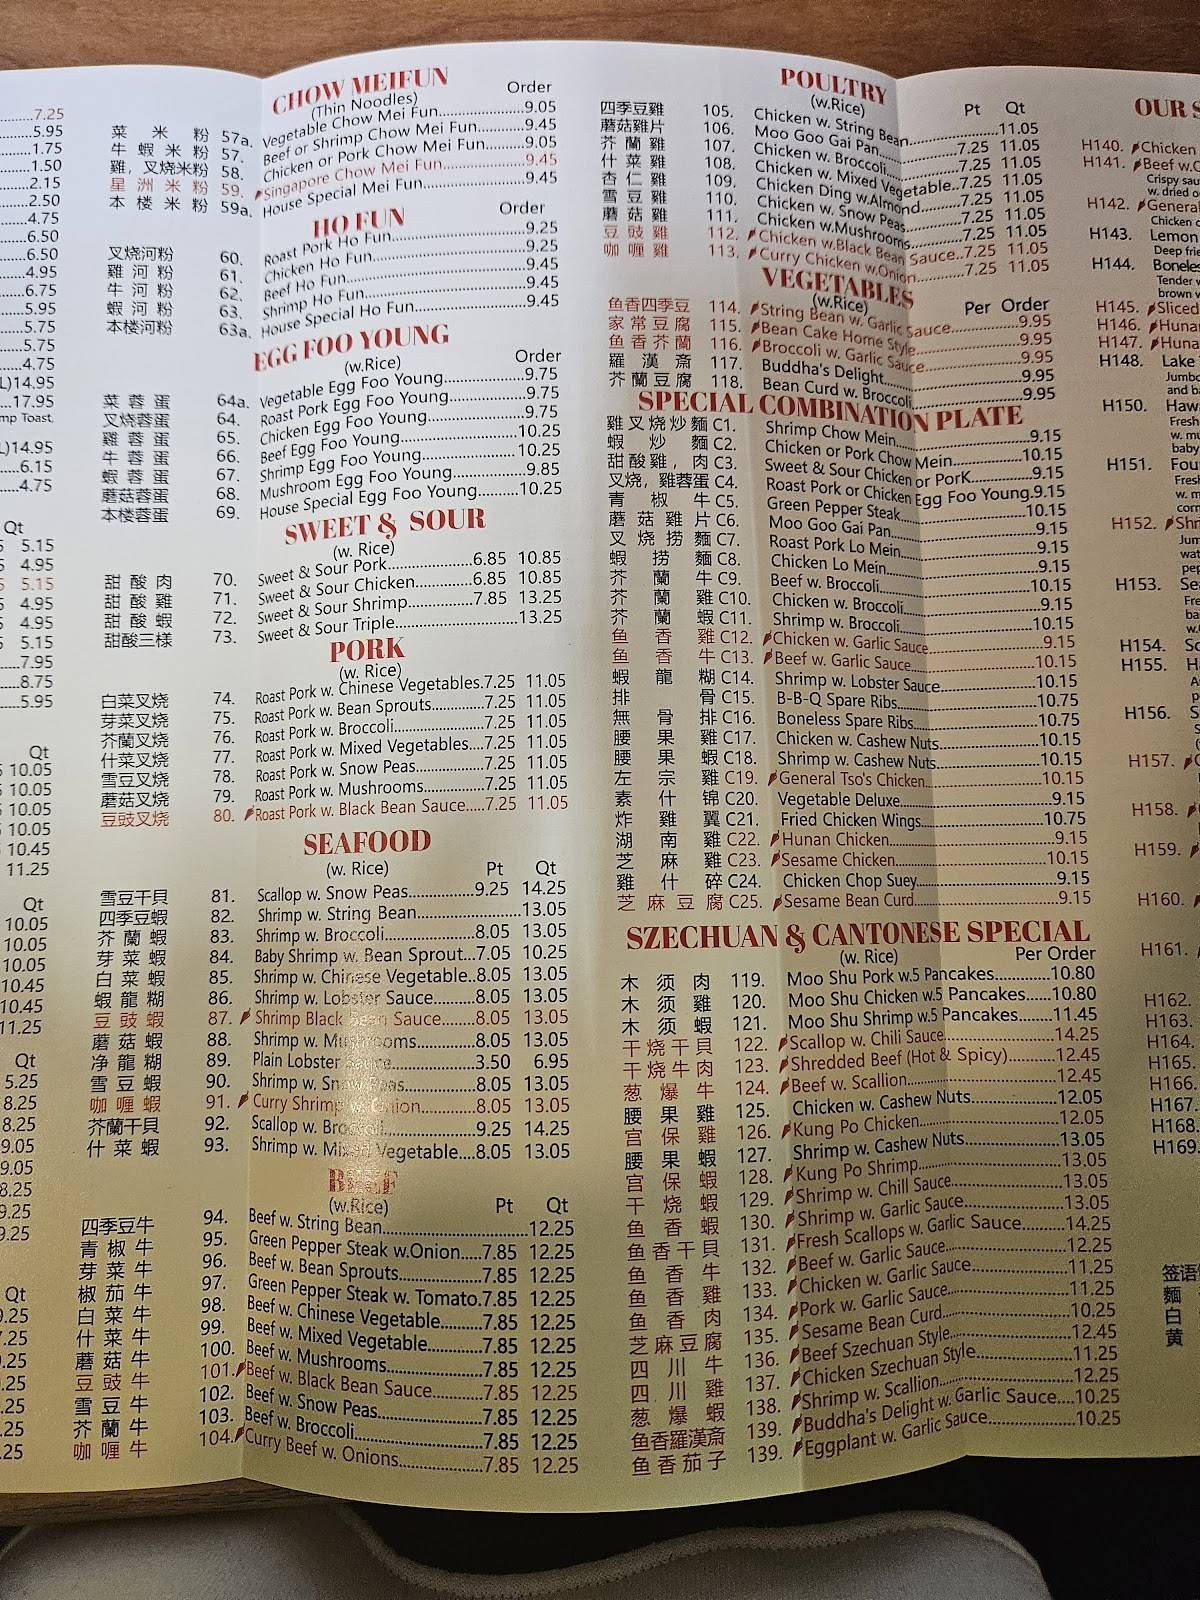 7.25
5.95
1.75
1.50
2.15
2.50
4.75
6.50
6.50
4.95
6.75
5.95
5.75
5.75
4.75
L)14.95
17.95
mp Toast,
L)14.95
6.15
4.75
Qt
5.15
4.95
5.15
4.95
4.95
5.15
7.95
8.75
5.95
Qt
10.05
10.05
10.05
10.05
10.45
11.25
Qt
10.05
10.05
10.05
10.45
10.45
11.25
Qt
5.25
8.25
8.25
9.05
9.05
8.25
9.25
9.25
Qt
CHOW MEIFUN
(Thin Noodles) Order
菜米粉 57a. Vegetable Chow Mei Fun 9.05
牛蝦米粉 57. Beef or Shrimp Chow Mei Fun 9.45
雞,叉烧米粉 58. Chicken or Pork Chow Mei Fun 9.05
星洲米粉 59. Singapore Chow Mei Fun 9.45
本楼米粉 59a. House Special Mei Fun 9.45
HO FUN
Order
叉烧河粉 60. Roast Pork Ho Fun 9.25
雞河粉 61. Chicken Ho Fun 9.25
牛河粉 62. Beef Ho Fun 9.45
蝦河粉 63. Shrimp Ho Fun 9.45
本楼河粉 63a. House Special Ho Fun 9.45
EGG FOO YOUNG
(w.Rice) Order
菜蓉蛋 64a. Vegetable Egg Foo Young 9.75
叉烧蓉蛋 64. Roast Pork Egg Foo Young 9.75
雞蓉蛋 65. Chicken Egg Foo Young 9.75
牛蓉蛋 66. Beef Egg Foo Young 10.25
蝦蓉蛋 67. Shrimp Egg Foo Young 10.25
蘑菇蓉蛋 68. Mushroom Egg Foo Young 9.85
本楼蓉蛋 69. House Special Egg Foo Young 10.25
SWEET & SOUR
(w. Rice)
甜酸肉 70. Sweet & Sour Pork 6.85 10.85
甜酸雞 71. Sweet & Sour Chicken 6.85 10.85
甜酸蝦 72. Sweet & Sour Shrimp 7.85 13.25
甜酸三様 73. Sweet & Sour Triple 13.25
PORK
(w. Rice)
白菜叉烧 74. Roast Pork w. Chinese Vegetables.7.25 11.05
芽菜叉烧 75. Roast Pork w. Bean Sprouts 7.25 11.05
芥蘭叉烧 76. Roast Pork w. Broccoli 7.25 11.05
什菜叉烧 77. Roast Pork w. Mixed Vegetables 7.25 11.05
雪豆叉烧 78. Roast Pork w. Snow Peas 7.25 11.05
蘑菇叉烧 79. Roast Pork w. Mushrooms 7.25 11.05
豆豉叉烧 80. Roast Pork w. Black Bean Sauce 7.25 11.05
SEAFOOD
(w. Rice) Pt Qt
雪豆干貝 81. Scallop w. Snow Peas 9.25 14.25
四季豆蝦 82. Shrimp w. String Bean 13.05
芥蘭蝦 83. Shrimp w. Broccoli 8.05 13.05
芽菜蝦 84. Baby Shrimp w. Bean Sprout 7.05 10.25
白菜蝦 85. Shrimp w. Chinese Vegetable 8.05 13.05
蝦龍糊 86. Shrimp w. Lobster Sauce 8.05 13.05
豆豉蝦 87. Shrimp Black Bean Sauce 8.05 13.05
蘑菇蝦 88. Shrimp w. Mushrooms 8.05 13.05
净龍糊 89. Plain Lobster Sauce 3.50 6.95
雪豆蝦 90. Shrimp w. Snow Peas 8.05 13.05
咖喱蝦 91. Curry Shrimp w. Onion 8.05 13.05
芥蘭干貝 92. Scallop w. Broccoli 9.25 14.25
什菜蝦 93. Shrimp w. Mixed Vegetable 8.05 13.05
BEEF
(w.Rice) Pt Qt
四季豆牛 94. Beef w. String Bean 12.25
青椒牛 95. Green Pepper Steak w.Onion 7.85 12.25
芽菜牛 96. Beef w. Bean Sprouts 7.85 12.25
椒茄牛 97. Green Pepper Steak w. Tomato.7.85 12.25
白菜牛 98. Beef w. Chinese Vegetable 7.85 12.25
什菜牛 99. Beef w. Mixed Vegetable 7.85 12.25
蘑菇牛 100. Beef w. Mushrooms 7.85 12.25
豆豉牛 101. Beef w. Black Bean Sauce 7.85 12.25
雪豆牛 102. Beef w. Snow Peas 7.85 12.25
芥蘭牛 103. Beef w. Broccoli 7.85 12.25
咖喱牛 104. Curry Beef w. Onions 7.85 12.25
POULTRY
(w.Rice) Pt Qt
四季豆雞 105. Chicken w. String Bean 11.05
蘑菇雞片 106. Moo Goo Gai Pan 7.25 11.05
芥蘭雞 107. Chicken w. Broccoli 7.25 11.05
什菜雞 108. Chicken w. Mixed Vegetable 7.25 11.05
杏仁雞 109. Chicken Ding w.Almond 7.25 11.05
雪豆雞 110. Chicken w. Snow Peas 7.25 11.05
蘑菇雞 111. Chicken w.Mushrooms 7.25 11.05
豆豉雞 112. Chicken w.Black Bean Sauce 7.25 11.05
咖喱雞 113. Curry Chicken w.Onion 7.25 11.05
VEGETABLES
(w.Rice) Per Order
鱼香四季豆 114. String Bean w. Garlic Sauce 9.95
家常豆腐 115. Bean Cake Home Style 9.95
鱼香芥蘭 116. Broccoli w. Garlic Sauce 9.95
羅漢斎 117. Buddha's Delight 9.95
芥蘭豆腐 118. Bean Curd w. Broccoli 9.95
SPECIAL COMBINATION PLATE
雞叉烧炒麵 C1. Shrimp Chow Mein 9.15
蝦炒麵 C2. Chicken or Pork Chow Mein 10.15
甜酸雞,肉 C3. Sweet & Sour Chicken or PorK 9.15
叉烧,雞蓉蛋 C4. Roast Pork or Chicken Egg Foo Young.9.15
青椒牛 C5. Green Pepper Steak 10.15
蘑菇雞片 C6. Moo Goo Gai Pan 9.15
叉烧捞麵 C7. Roast Pork Lo Mein 9.15
蝦捞麵 C8. Chicken Lo Mein 9.15
芥蘭牛 C9. Beef w. Broccoli 10.15
芥蘭雞 C10. Chicken w. Broccoli 9.15
芥蘭蝦 C11. Shrimp w. Broccoli 10.15
鱼香雞 C12. Chicken w. Garlic Sauce 9.15
鱼香牛 C13. Beef w. Garlic Sauce 10.15
蝦龍糊 C14. Shrimp w. Lobster Sauce 10.15
排骨 C15. B-B-Q Spare Ribs 10.75
無骨排 C16. Boneless Spare Ribs 10.75
腰果雞 C17. Chicken w. Cashew Nuts 10.15
腰果蝦 C18. Shrimp w. Cashew Nuts 10.15
左宗雞 C19. General Tso's Chicken 10.15
素什锦 C20. Vegetable Deluxe 9.15
炸雞翼 C21. Fried Chicken Wings 10.75
湖南雞 C22. Hunan Chicken 9.15
芝麻雞 C23. Sesame Chicken 10.15
雞什碎 C24. Chicken Chop Suey 9.15
芝麻豆腐 C25. Sesame Bean Curd 9.15
SZECHUAN & CANTONESE SPECIAL
(w. Rice) Per Order
木须肉 119. Moo Shu Pork w.5 Pancakes 10.80
木须雞 120. Moo Shu Chicken w.5 Pancakes 10.80
木须蝦 121. Moo Shu Shrimp w.5 Pancakes 11.45
干烧干貝 122. Scallop w. Chili Sauce 14.25
干烧牛肉 123. Shredded Beef (Hot & Spicy) 12.45
葱爆牛 124. Beef w. Scallion 12.45
腰果雞 125. Chicken w. Cashew Nuts 12.05
宫保雞 126. Kung Po Chicken 12.05
腰果蝦 127. Shrimp w. Cashew Nuts 13.05
宫保蝦 128. Kung Po Shrimp 13.05
干烧蝦 129. Shrimp w. Chill Sauce 13.05
鱼香蝦 130. Shrimp w. Garlic Sauce 13.05
鱼香干貝 131. Fresh Scallops w. Garlic Sauce 14.25
鱼香牛 132. Beef w. Garlic Sauce 12.25
鱼香雞 133. Chicken w. Garlic Sauce 11.25
鱼香肉 134. Pork w. Garlic Sauce 11.25
芝麻豆腐 135. Sesame Bean Curd 10.25
四川牛 136. Beef Szechuan Style 12.45
四川雞 137. Chicken Szechuan Style 11.25
葱爆蝦 138. Shrimp w. Scallion 12.25
鱼香羅漢斎 139. Buddha's Delight w. Garlic Sauce 10.25
鱼香茄子 139. Eggplant w. Garlic Sauce 10.25
OUR S
H140. Chicken
H141. Beef w.O
Crispy sau
w. dried o
H142. General
Chicken c
H143. Lemon
Deep frie
H144. Boneles
Tender w
brown w
H145. Sliced
H146. Huna
H147. Huna
H148. Lake
Jumbo
and ba
H150. Haw
Fresh
w. mu
baby
H151. Fou
Fresh
w. m
corn
H152. Shr
Jum
wat
pep
H153. Se
Fre
ba
w.
H154. Sc
H155. Ha
H156. S
H157.
H158.
H159.
H160.
H161.
H162.
H163.
H164.
H165.
H166.
H167.
H168.
H169.
签语
麵
白
黄